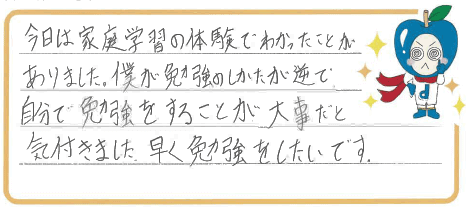 今日は家庭学習の体験でわかったことが
ありました。僕が勉強のしかたが逆で
自分で勉強をすることが大事だと
気付きました。早く勉強をしたいです。
d